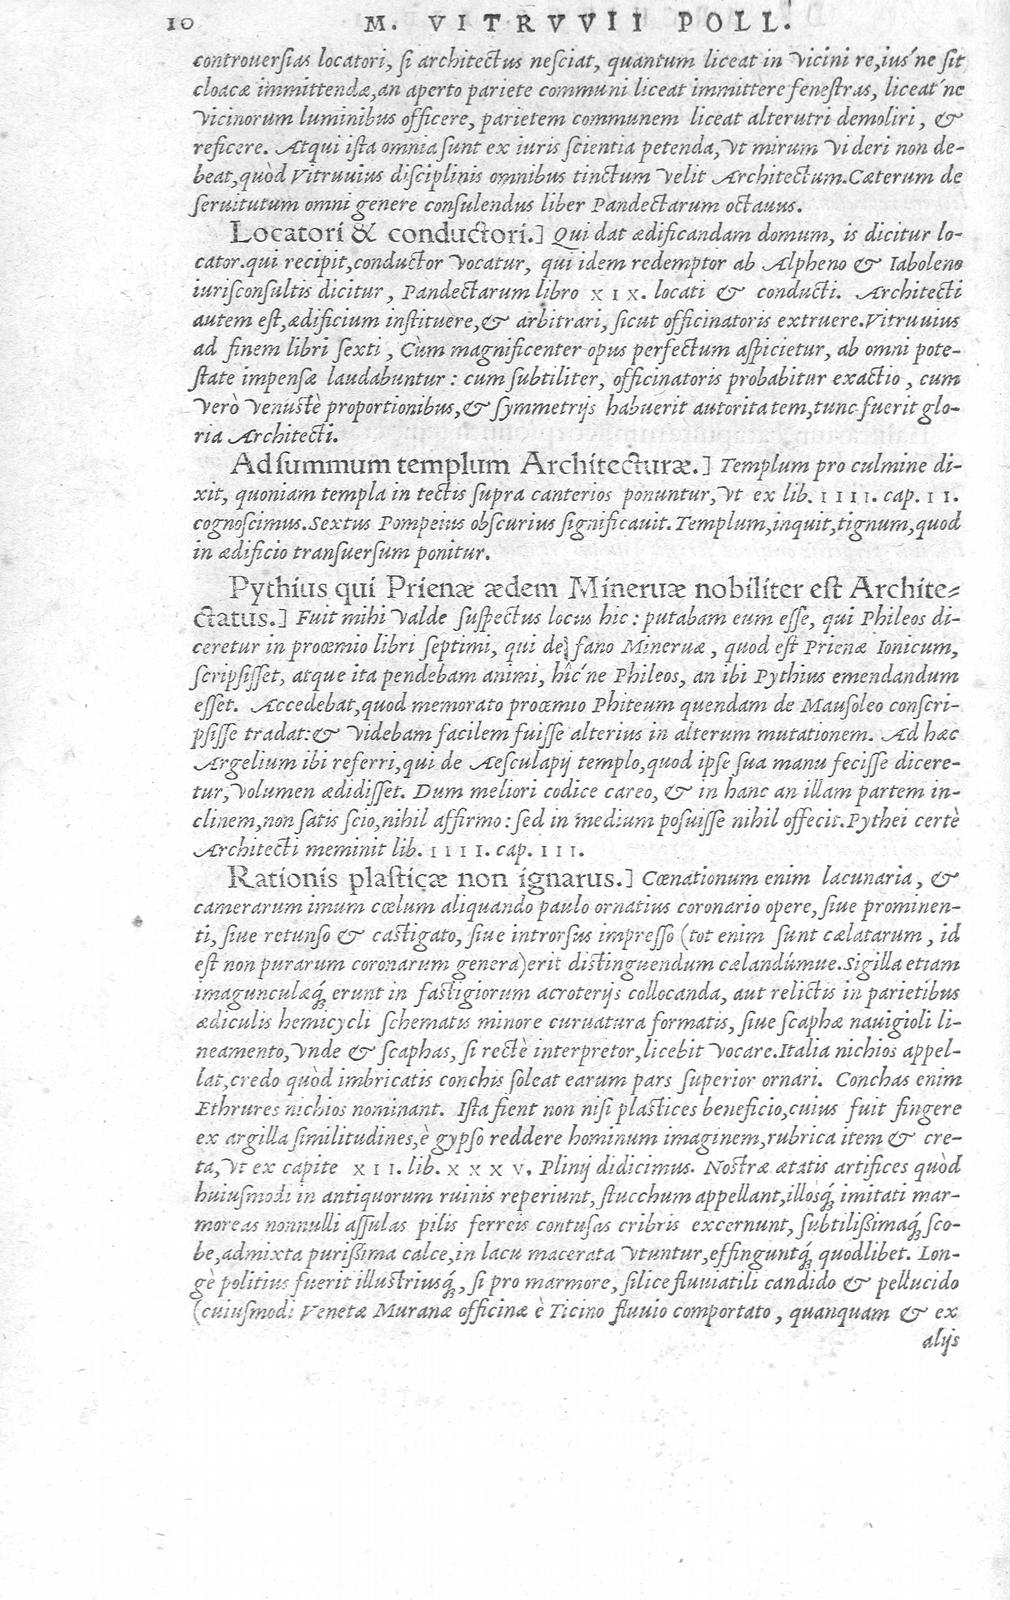 10 M. VITRVVII POLL.
controuersias locatori, si architectus nesciat, quantum liceat in vicini re, ius'ne sit
cloacæ immittendæ, an aperto pariete communi liceat immittere fenestras, liceat'ne
vicinorum luminibus officere, parietem communem liceat alterutri demoliri, &
reficere. Atqui ista omnia sunt ex iuris scientia petenda, vt mirum videri non de-
beat, quòd Vitruuius disciplinis omnibus tinctum velit Architectum. Cæterum de
seruitutum omni genere consulendus liber Pandectarum octauus.
Locatori & conductori.] Qui dat ædificandam domum, is dicitur lo-
cator. qui recipit, conductor vocatur, qui idem redemptor ab Alpheno & Iaboleno
iurisconsultis dicitur, Pandectarum libro XIX. locati & conducti. Architecti
autem est, ædificium instituere, & arbitrari, sicut officinatoris extruere. Vitruuius
ad finem libri sexti, Cùm magnificenter opus perfectum aspicietur, ab omni pote-
state impensæ laudabuntur: cum subtiliter, officinatoris probabitur exactio, cum
verò venustè proportionibus, & symmetrijs habuerit autoritatem, tunc fuerit glo-
ria Architecti.
Ad summum templum Architecturæ.] Templum pro culmine di-
xit, quoniam templa in tectis supra canterios ponuntur, vt ex lib. IIII. cap. II.
cognoscimus. Sextus Pompeius obscurius significauit. Templum, inquit, tignum, quod
in ædificio transuersum ponitur.
Pythius qui Prienæ ædem Mineruæ nobiliter est Archite-
ctatus.] Fuit mihi valde suspectus locus hic: putabam eum esse, qui Phileos di-
ceretur in proœmio libri septimi, qui de fano Mineruæ, quod est Prienæ Ionicum,
scripsisset, atque ita pendebam animi, hîc'ne Phileos, an ibi Pythius emendandum
esset. Accedebat, quod memorato proœmio Phiteum quendam de Mausoleo conscri-
psisse tradat: & videbam facilem fuisse alterius in alterum mutationem. Ad hæc
Argelium ibi referri, qui de Aesculapij templo, quod ipse sua manu fecisse dicere-
tur, volumen ædidisset. Dum meliori codice careo, & in hanc an illam partem in-
clinem, non satis scio, nihil affirmo: sed in medium posuisse nihil offecit. Pythei certè
Architecti meminit lib. IIII. cap. III.
Rationis plasticæ non ignarus.] Cœnationum enim lacunaria, &
camerarum imum cœlum aliquando paulo ornatius coronario opere, siue prominen-
ti, siue retunso & castigato, siue introrsus impresso (tot enim sunt cælatarum, id
est non purarum coronarum genera) erit distinguendum cælandúmue. Sigilla etiam
imagunculæq́; erunt in fastigiorum acroterijs collocanda, aut relictis in parietibus
ædiculis hemicycli schematis minore curuatura formatis, siue scaphæ nauigioli li-
neamento, vnde & scaphas, si rectè interpretor, licebit vocare. Italia nichios appel-
lat, credo quòd imbricatis conchis soleat earum pars superior ornari. Conchas enim
Ethrures nichios nominant. Ista fient non nisi plastices beneficio, cuius fuit fingere
ex argilla similitudines, è gypso reddere hominum imaginem, rubrica item & cre-
ta, vt ex capite XII. lib. XXXV. Plinij didicimus. Nostræ ætatis artifices quòd
huiusmodi in antiquorum ruinis reperiunt, stucchum appellant, illosq́; imitati mar-
moreas nonnulli assulas pilis ferreis contusas cribris excernunt, subtilißimaq́; sco-
be, admixta purißima calce, in lacu macerata vtuntur, effinguntq́; quodlibet. Lon-
gè politius fuerit illustriusq́;, si pro marmore, silice fluuiatili candido & pellucido
(cuiusmodi Venetæ Muranæ officinæ è Ticino fluuio comportato, quanquam & ex
alijs